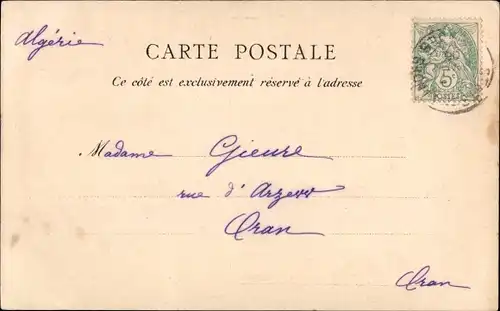 Algérie
CARTE POSTALE
Ce côté est exclusivement réservé à l'adresse
5c
Madame Gieure
rue d'Arzew
Oran
Oran